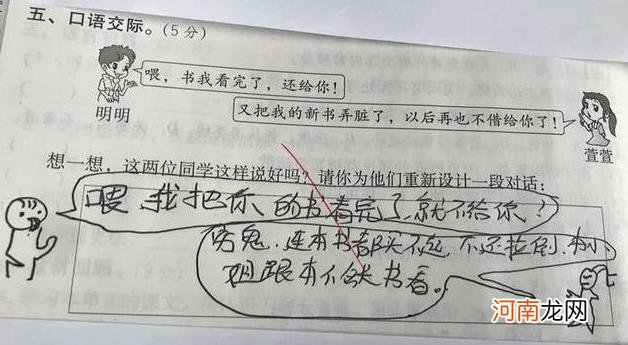 五、口语交际。(5分)
喂，书我看完了，还给你！
又把我的新书弄脏了，以后再也不借给你了！
明明
萱萱
想一想，这两位同学这样说好吗？请你为他们重新设计一段对话：
喂，我把你的书看完了，就不给你！
穷鬼，连本书都买不起，不还拉倒，本小
姐跟本不缺书看。
河南龙网